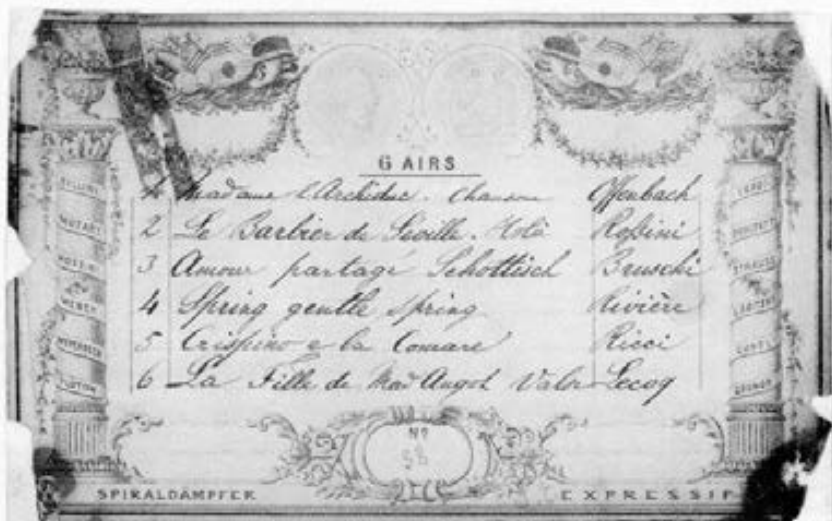 6 AIRS
1 Madame l'Archiduc. Chanson Offenbach
2 Le Barbier de Séville. Holà Roßini
3 Amour partagé Schottisch Bruschi
4 Spring gentle spring Rivière
5 Crispino e la Comare Ricci
6 La Fille de Mad Angot Valse Lecoq
BELLINI
MOZART
ROSSINI
WEBER
MEYERBEER
FLOTOW
VERDI
DONIZETTI
STRAUSS
GOUNOD
No
SPIRALDÄMPFER
EXPRESSIF